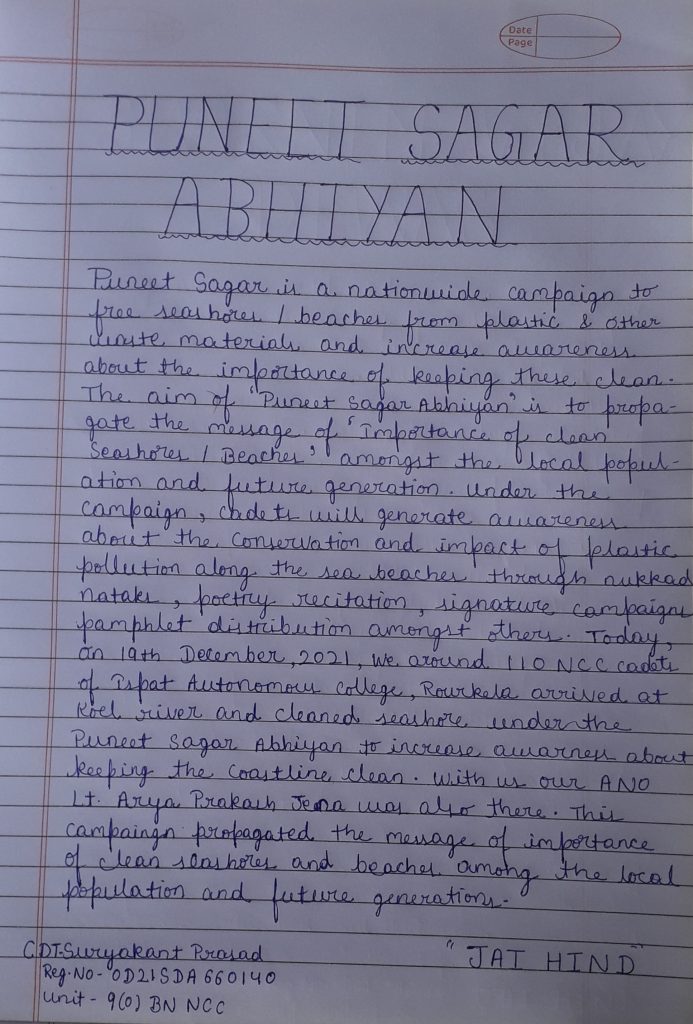 Date
Page
PUNEET SAGAR
ABHIYAN
Puneet Sagar is a nationwide campaign to
free seashores / beaches from plastic & other
waste materials and increase awareness
about the importance of keeping these clean.
The aim of "Puneet Sagar Abhiyan" is to propa-
gate the message of 'Importance of clean
Seashores / Beaches' amongst the local popul-
ation and future generation. Under the
campaign, cadets will generate awareness
about the conservation and impact of plastic
pollution along the sea beaches through nukkad
nataks, poetry recitation, signature campaigns
pamphlet distribution amongst others. Today,
on 19th December, 2021, we around 110 NCC cadets
of Ispat Autonomous College, Rourkela arrived at
Koel river and cleaned seashore under the
Puneet Sagar Abhiyan to increase awarness about
keeping the coastline clean. With us our ANO
Lt. Arya Prakash Jena was also there. This
campaingn propagated the message of importance
of clean seashores and beaches among the local
population and future generations.
CDT. Suryakant Prasad
"JAI HIND"
Reg. No- OD21SDA660140
Unit - 9(O) BN NCC